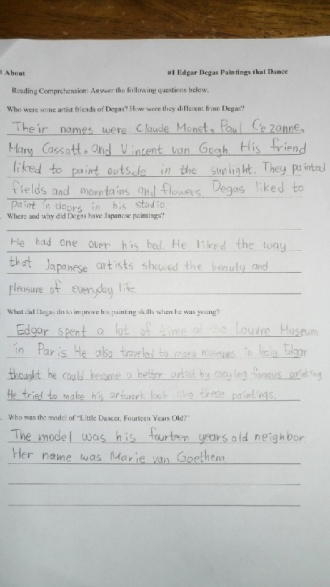 About #1 Edgar Degas Paintings that Dance
Reading Comprehension: Answer the following questions below.
Who were some artist friends of Degas? How were they different from Degas?
Their names were Claude Monet, Paul Cezanne,
Mary Cassatt, and Vincent van Gogh His friend
liked to paint outside in the sunlight. They painted
fields and mountains and flowers. Degas liked to
paint in doors in his studio.
Where and why did Degas have Japanese paintings?
He had one over his bed. He liked the way
that Japanese artists showed the beauty and
pleasure of everyday life
What did Degas do to improve his painting skills when he was young?
Edgar spent a lot of time at the Louvre Museum
in Paris He also traveled to many museums in Italy Edgar
thought he could become a better artist by copying famous painting
He tried to make his artwork look like these paintings.
Who was the model of "Little Dancer, Fourteen Years Old?"
The model was his fourteen years old neighbor
Her name was Marie van Goethem